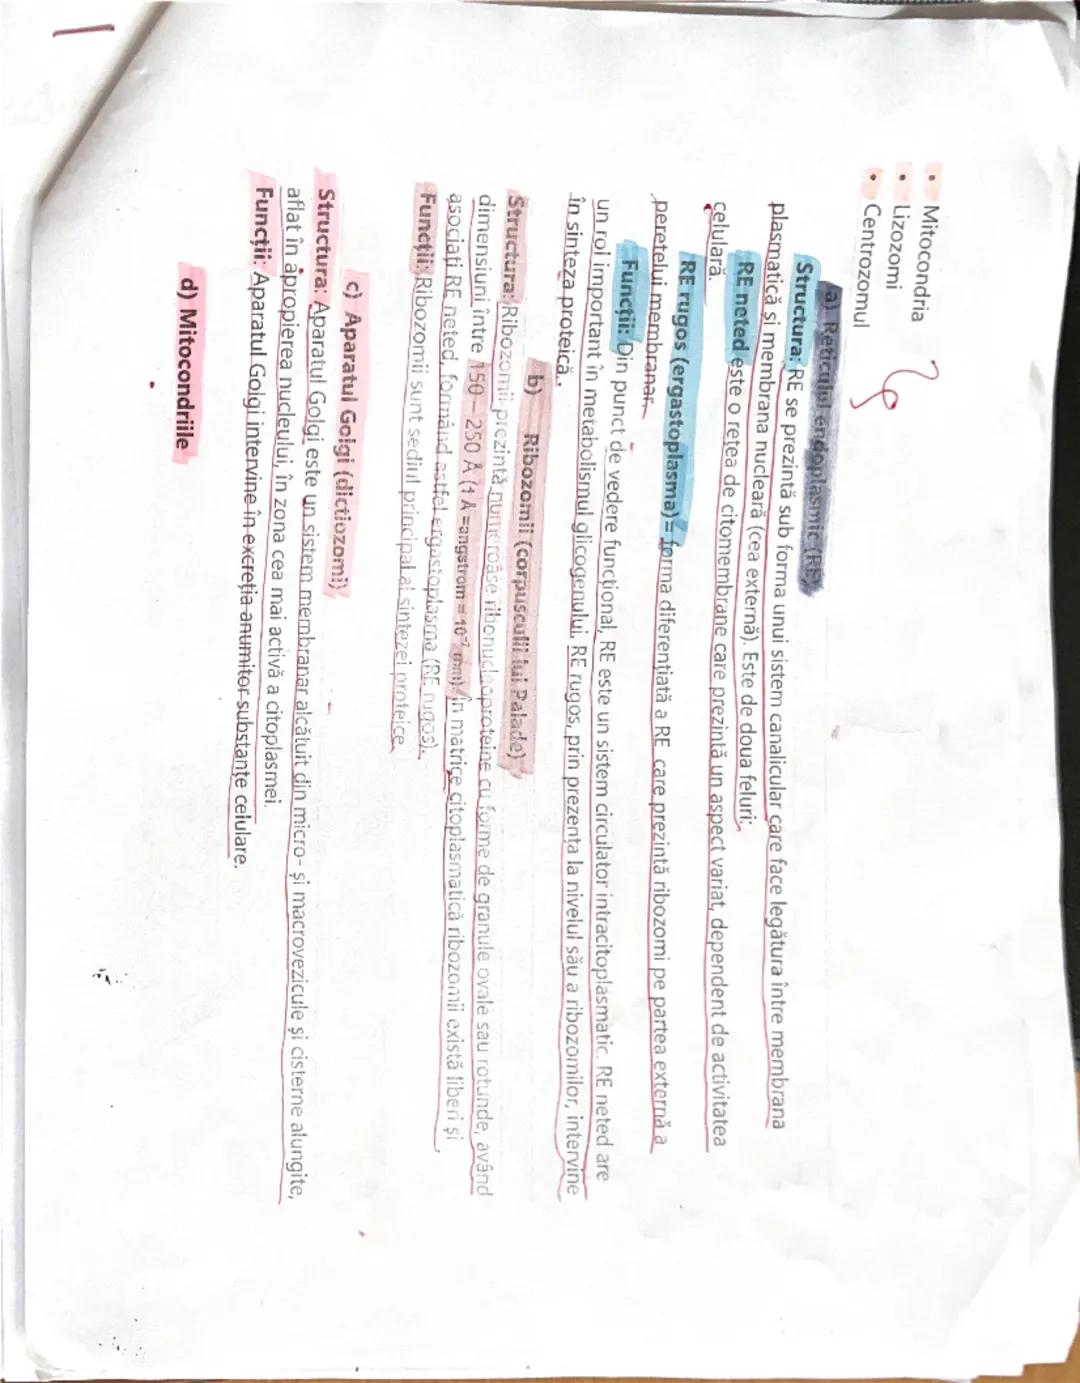 • Mitocondria
• Lizozomi
• Centrozomul
a) Reticulul endoplasmic (RE)
Structura: RE se prezintă sub forma unui sistem canalicular care face legătura între membrana
plasmatică și membrana nucleară (cea externă). Este de doua feluri:
RE neted este o rețea de citomembrane care prezintă un aspect variat, dependent de activitatea
celulară.
RE rugos (ergastoplasma)= forma diferențiată a RE care prezintă ribozomi pe partea externă a
peretelui membranar
Funcții: Din punct de vedere funcțional, RE este un sistem circulator intracitoplasmatic. RE neted are
un rol important în metabolismul glicogenului. RE rugos, prin prezența la nivelul său a ribozomilor, intervine
în sinteza proteică.
b) Ribozomii (corpusculii lui Palade)
Structura: Ribozomii prezintă numeroase ribonucleoproteine cu forme de granule ovale sau rotunde, având
dimensiuni între 150 – 250 Å (1 Å =angstrom = 10⁻⁷ mm). În matrice citoplasmatică ribozomii există liberi și
asociați RE neted, formând astfel ergastoplasma (RE rugos).
Funcții: Ribozomii sunt sediul principal al sintezei proteice
c) Aparatul Golgi (dictiozomi)
Structura: Aparatul Golgi este un sistem membranar alcătuit din micro- și macrovezicule și cisterne alungite,
aflat în apropierea nucleului, în zona cea mai activă a citoplasmei.
Funcții: Aparatul Golgi intervine în excreția anumitor substanțe celulare.
d) Mitocondriile